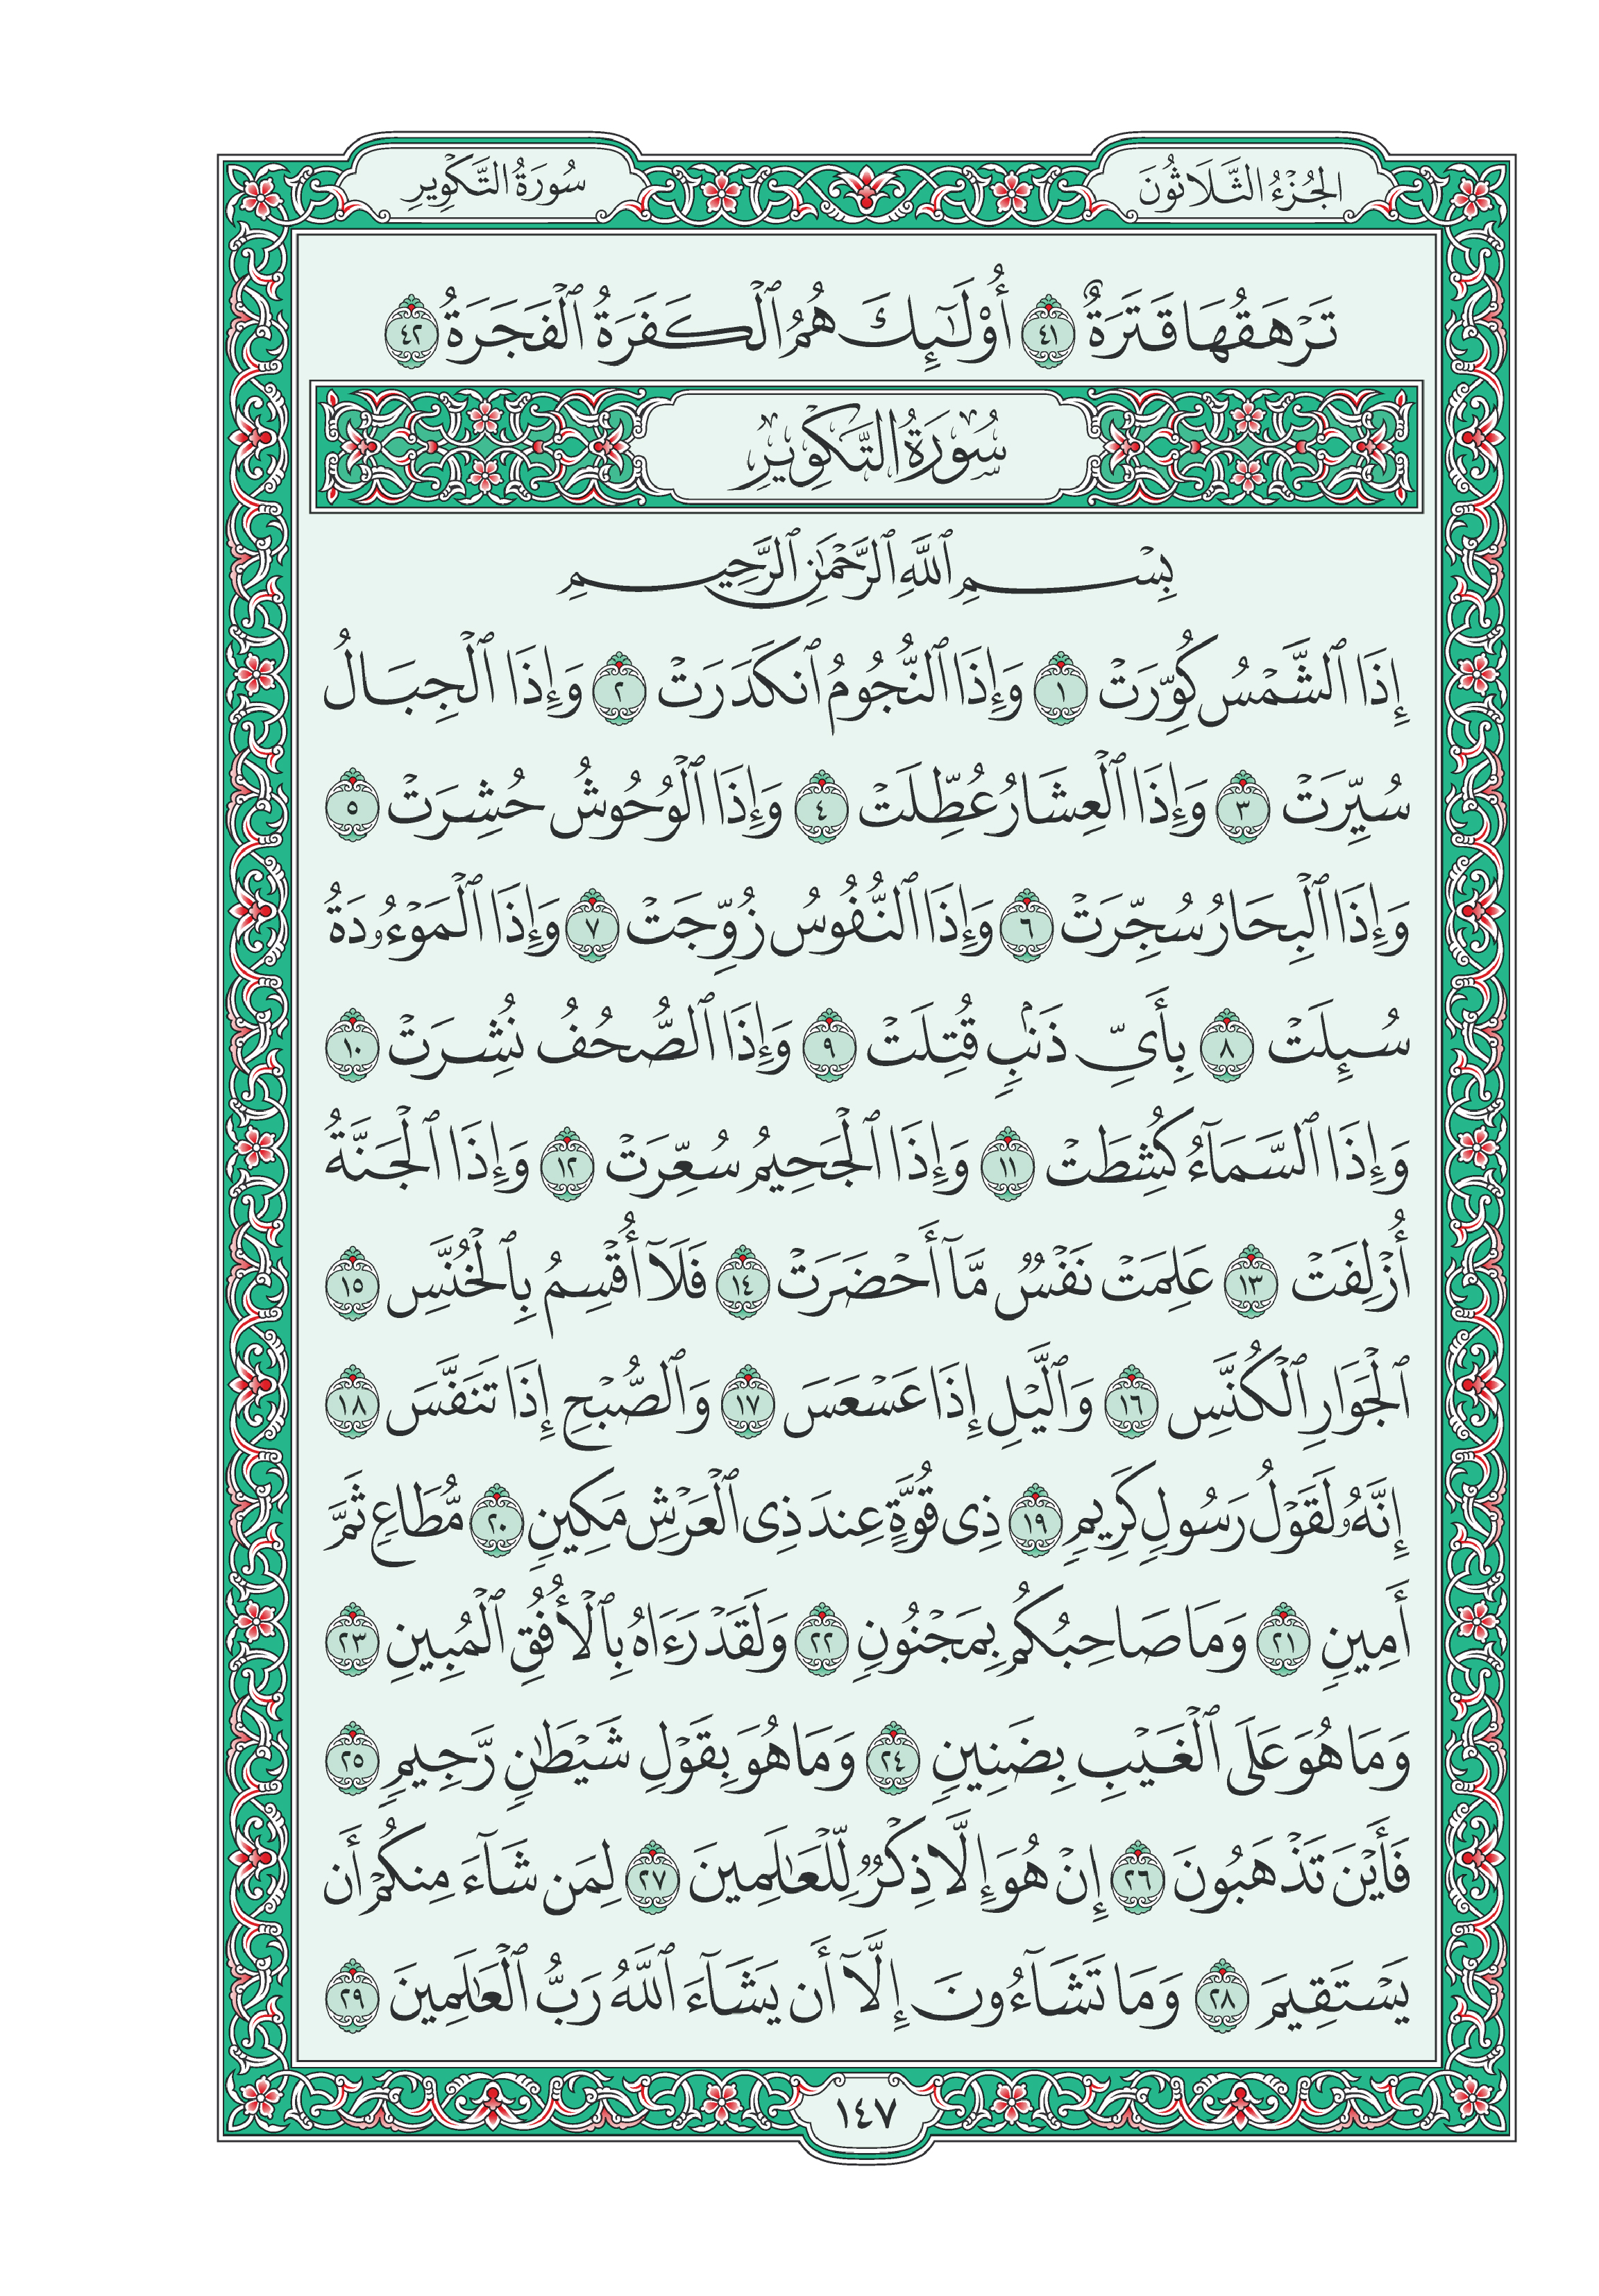 الجُزْءُ الثَّلَاثُونَ
سُورَةُ التَّكْوِيرِ
تَرْهَقُهَا قَتَرَةٌ ٤١ أُوْلَٰٓئِكَ هُمُ ٱلْكَفَرَةُ ٱلْفَجَرَةُ ٤٢
سُورَةُ التَّكْوِيرِ
بِسْمِ ٱللَّهِ ٱلرَّحْمَٰنِ ٱلرَّحِيمِ
إِذَا ٱلشَّمْسُ كُوِّرَتْ ١ وَإِذَا ٱلنُّجُومُ ٱنكَدَرَتْ ٢ وَإِذَا ٱلْجِبَالُ
سُيِّرَتْ ٣ وَإِذَا ٱلْعِشَارُ عُطِّلَتْ ٤ وَإِذَا ٱلْوُحُوشُ حُشِرَتْ ٥
وَإِذَا ٱلْبِحَارُ سُجِّرَتْ ٦ وَإِذَا ٱلنُّفُوسُ زُوِّجَتْ ٧ وَإِذَا ٱلْمَوْءُۥدَةُ
سُئِلَتْ ٨ بِأَىِّ ذَنۢبٍ قُتِلَتْ ٩ وَإِذَا ٱلصُّحُفُ نُشِرَتْ ١٠
وَإِذَا ٱلسَّمَآءُ كُشِطَتْ ١١ وَإِذَا ٱلْجَحِيمُ سُعِّرَتْ ١٢ وَإِذَا ٱلْجَنَّةُ
أُزْلِفَتْ ١٣ عَلِمَتْ نَفْسٌ مَّآ أَحْضَرَتْ ١٤ فَلَآ أُقْسِمُ بِٱلْخُنَّسِ ١٥
ٱلْجَوَارِ ٱلْكُنَّسِ ١٦ وَٱلَّيْلِ إِذَا عَسْعَسَ ١٧ وَٱلصُّبْحِ إِذَا تَنَفَّسَ ١٨
إِنَّهُۥ لَقَوْلُ رَسُولٍ كَرِيمٍ ١٩ ذِى قُوَّةٍ عِندَ ذِى ٱلْعَرْشِ مَكِينٍ ٢٠ مُّطَاعٍ ثَمَّ
أَمِينٍ ٢١ وَمَا صَاحِبُكُم بِمَجْنُونٍ ٢٢ وَلَقَدْ رَءَاهُ بِٱلْأُفُقِ ٱلْمُبِينِ ٢٣
وَمَا هُوَ عَلَى ٱلْغَيْبِ بِضَنِينٍ ٢٤ وَمَا هُوَ بِقَوْلِ شَيْطَٰنٍ رَّجِيمٍ ٢٥
فَأَيْنَ تَذْهَبُونَ ٢٦ إِنْ هُوَ إِلَّا ذِكْرٌ لِّلْعَٰلَمِينَ ٢٧ لِمَن شَآءَ مِنكُمْ أَن
يَسْتَقِيمَ ٢٨ وَمَا تَشَآءُونَ إِلَّآ أَن يَشَآءَ ٱللَّهُ رَبُّ ٱلْعَٰلَمِينَ ٢٩
١٤٧